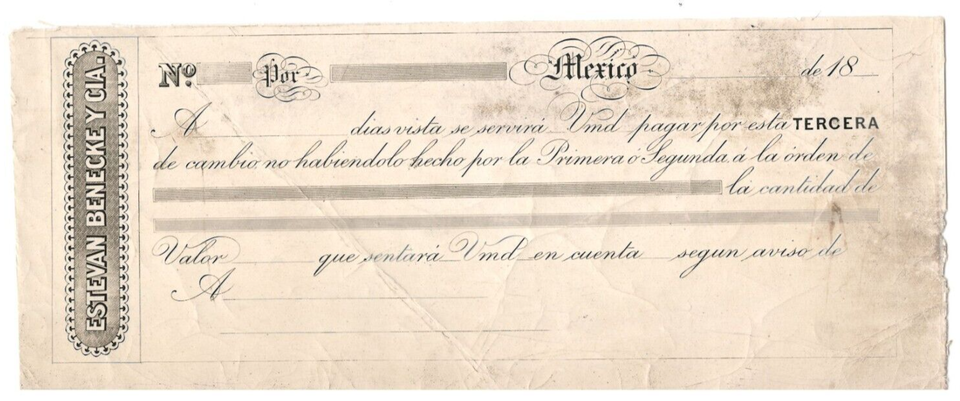 ESTEVAN BENECKE Y CIA.
Nº Por Mexico de 18
A dias vista se servirá Vmd pagar por esta TERCERA
de cambio no habiendolo hecho por la Primera ó Segunda á la órden de
la cantidad de
Valor que sentará Vmd en cuenta segun aviso de
A